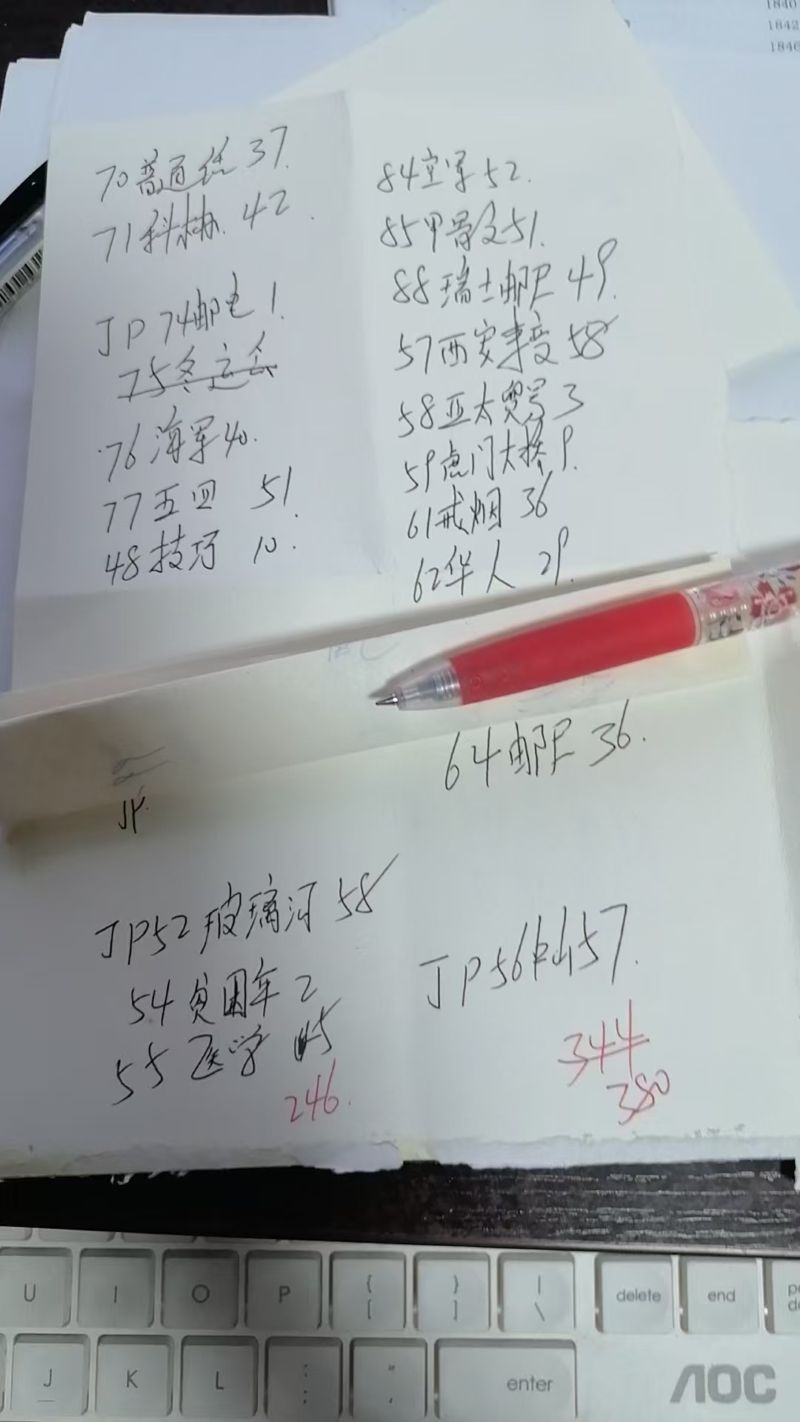 1840
1842
1846
70普通话 37.
71科林. 42.
JP74邮电 1.
75冬运会
76海军40.
77五四 51.
48技巧 10.
84空军52.
85甲骨文51.
88瑞士邮民 49.
57西安事变58
58亚太贸易3
59虎门大桥9.
61戒烟 36
62华人 29.
64邮民 36.
JP
JP52玻璃河58
54贫困年2
55医学 5
246.
JP56 57.
344
380
U I O P { [ } ] | \ delete end
J K L : ; " ' enter
AOC